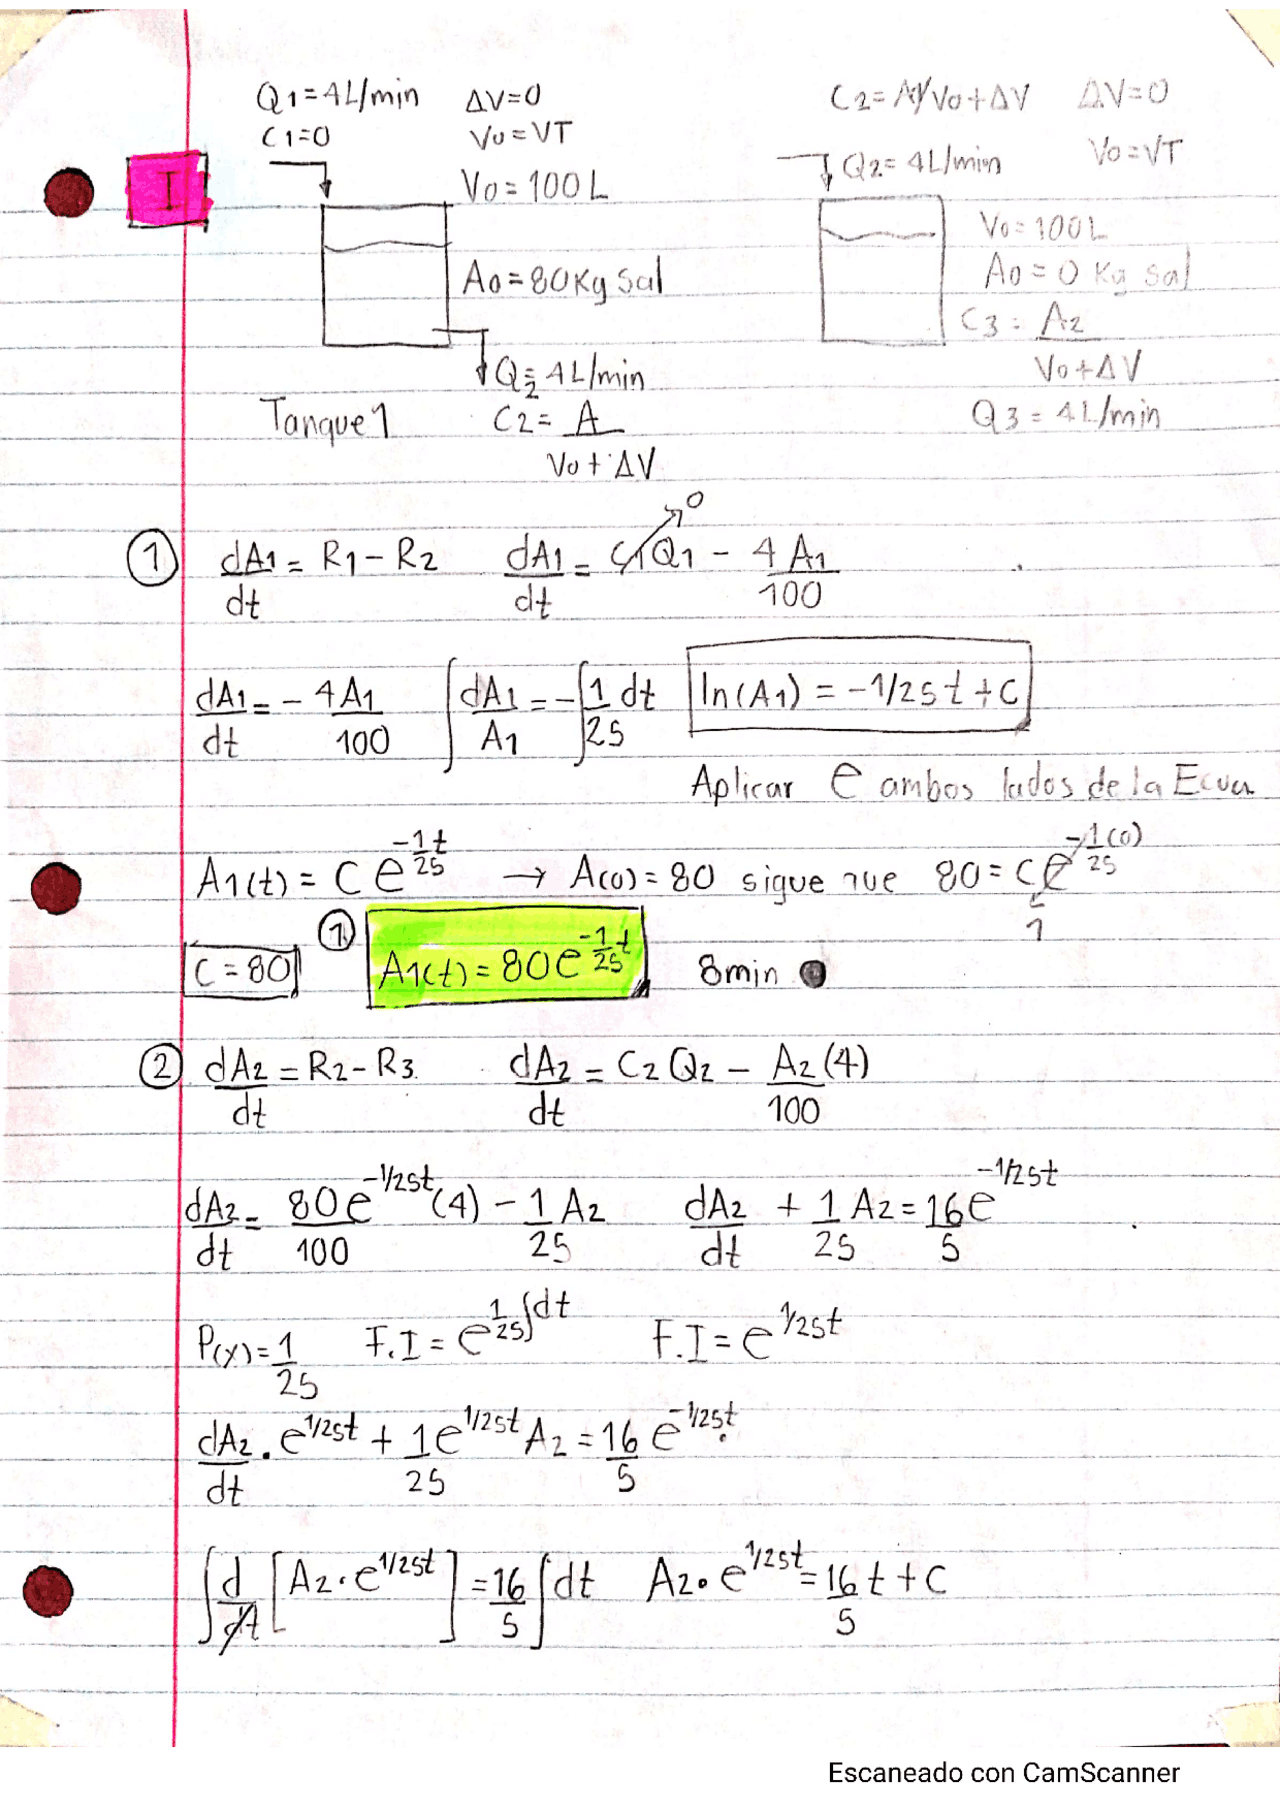 Q1=4L/min ΔV=0 C2= A1/Vo+ΔV ΔV=0
C1=0 Vo=VT Q2= 4L/min Vo=VT
I Vo=100L Vo=100L
Ao=80Kg Sal Ao=0 Kg Sal
C3= A2/Vo+ΔV
Q2=4L/min
Tanque 1 C2= A/Vo+ΔV Q3=4L/min
① dA1/dt = R1-R2 dA1/dt = C1Q1 - 4A1/100 0
dA1/dt = -4A1/100 ∫dA1/A1 = -∫1/25 dt ln(A1) = -1/25t+C
Aplicar e ambos lados de la Ecua
A1(t) = Ce^-1/25t → A(0)=80 sigue que 80=Ce^-1/25(0) 1
C=80 ① A1(t)=80e^-1/25t 8min
② dA2/dt = R2-R3. dA2/dt = C2Q2 - A2(4)/100
dA2/dt = 80e^-1/25t/100 (4) - 1/25 A2 dA2/dt + 1/25 A2 = 16/5 e^-1/25t
P(x)=1/25 F.I = e^1/25∫dt F.I = e^1/25t
dA2/dt . e^1/25t + 1/25 e^1/25t A2 = 16/5 e^-1/25t.
∫d/dt [A2.e^1/25t] = 16/5 ∫dt A2.e^1/25t = 16/5 t+C
Escaneado con CamScanner